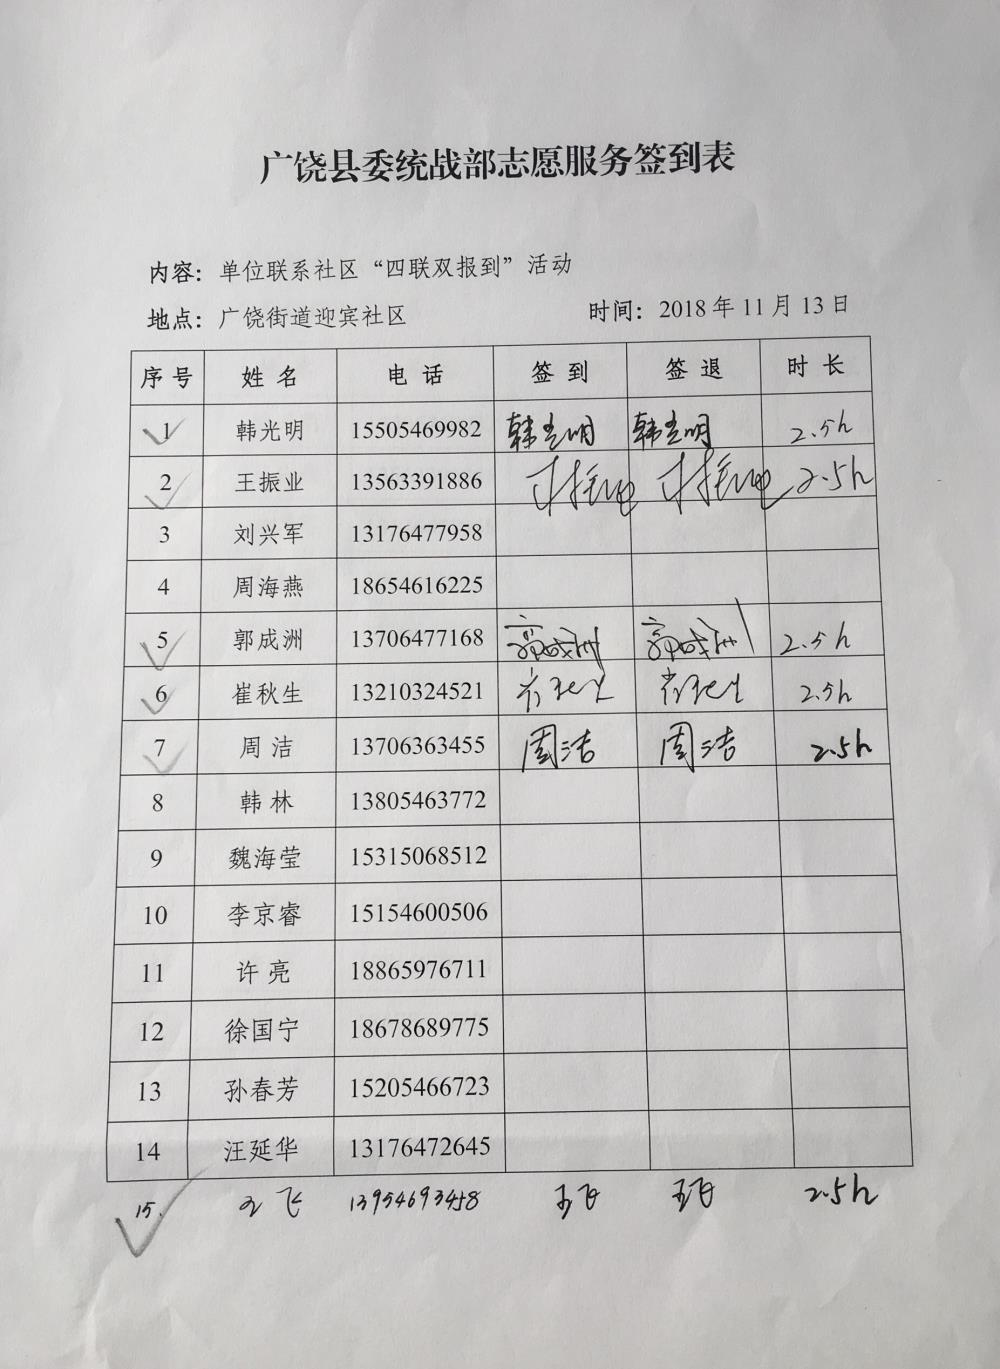 广饶县委统战部志愿服务签到表
内容：单位联系社区“四联双报到”活动
地点：广饶街道迎宾社区 时间：2018年11月13日
序号 姓名 电话 签到 签退 时长
1 韩光明 15505469982 韩光明 韩光明 2.5h
2 王振业 13563391886 2.5h
3 刘兴军 13176477958
4 周海燕 18654616225
5 郭成洲 13706477168 郭成洲 郭成洲 2.5h
6 崔秋生 13210324521 2.5h
7 周洁 13706363455 周洁 周洁 2.5h
8 韩林 13805463772
9 魏海莹 15315068512
10 李京睿 15154600506
11 许亮 18865976711
12 徐国宁 18678689775
13 孙春芳 15205466723
14 汪延华 13176472645
15. 王飞 13954693458 王飞 王飞 2.5h